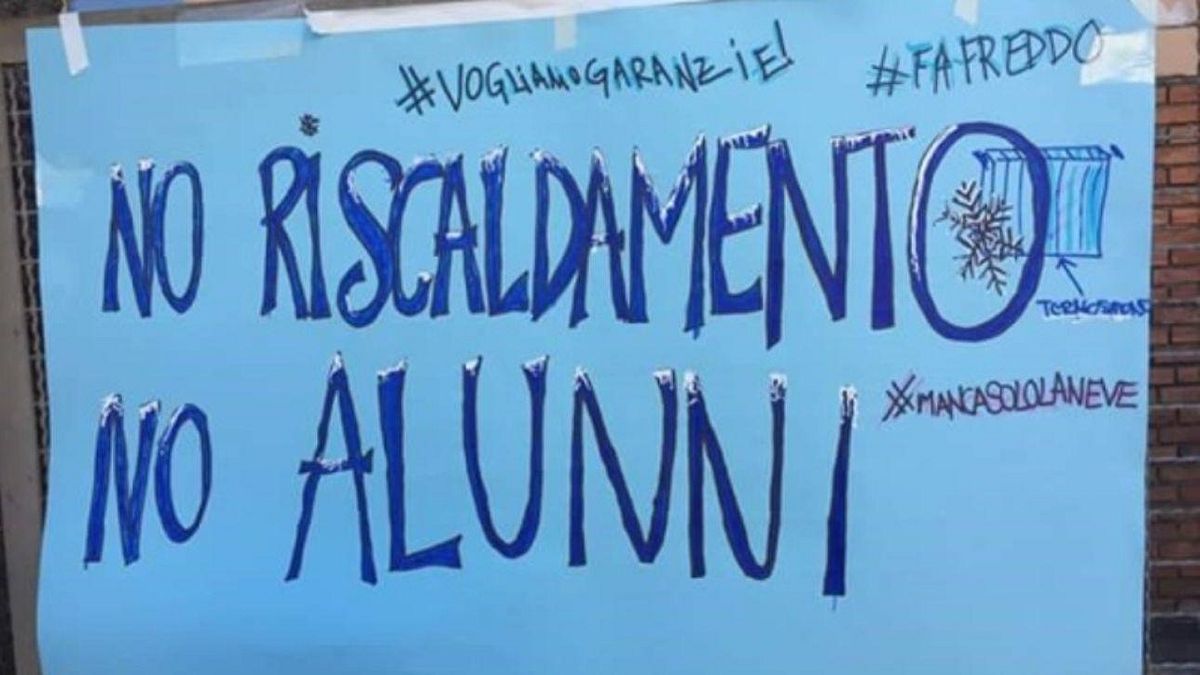 #VOGLiAMOGARANZiE!
#FAFREDDO
NO RISCALDAMENTO
NO ALUNNI
#MANCASOLOLANEVE